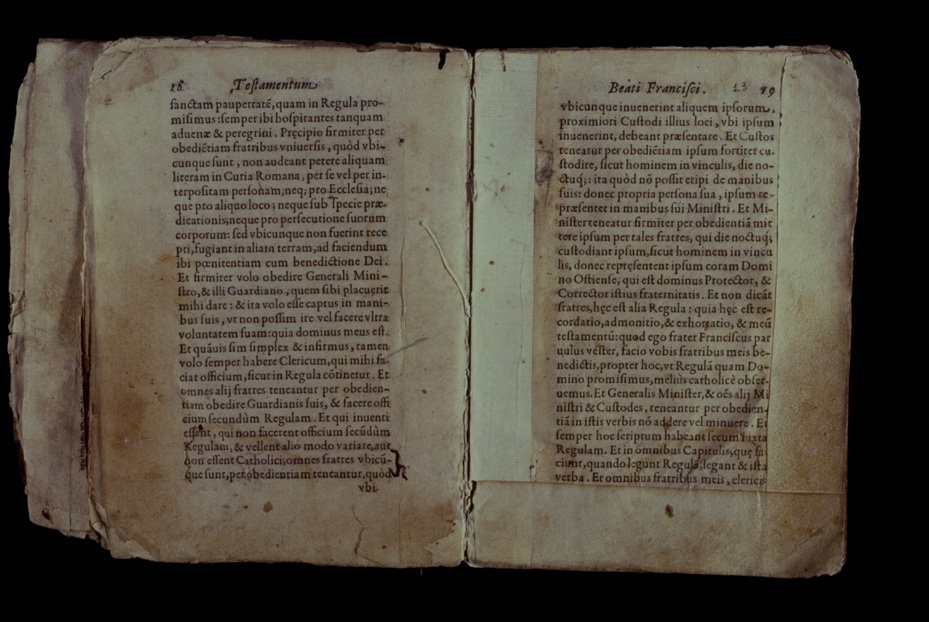 18 Testamentum
sanctam paupertatē, quam in Regula pro-
misimus: semper ibi hospitantes tanquam
aduenæ & peregrini. Pręcipio firmiter per
obediētiam fratribus vniuersis, quòd vbi-
cunque sunt, non audeant petere aliquam
literam in Curia Romana, per se vel per in-
terpositam personam; neq; pro Ecclesia; ne
que pro aliquo loco; neque sub specie præ-
dicationis; neque pro persecutione suorum
corporum: sed vbicunque non fuerint rece
pti, fugiant in aliam terram, ad faciendum
ibi pœnitentiam cum benedictione Dei.
Et firmiter volo obedire Generali Mini-
stro, & illi Guardiano, quem sibi placuerit
mihi dare: & ita volo esse captus in mani-
bus suis, vt non possim ire vel facere vltra
voluntatem suam: quia dominus meus est.
Et quāuis sim simplex & infirmus, tamen
volo semper habere Clericum, qui mihi fa-
ciat officium, sicut in Regula cōtinetur. Et
omnes alij fratres teneantur per obedien-
tiam obedire Guardianis suis, & facere offi
cium secundùm Regulam. Et qui inuenti
essent, qui non facerent officium secūdùm
Regulam, & vellent alio modo variare, aut
non essent Catholici; omnes fratres vbicū-
que sunt, per obedientiam teneantur, quòd
vbi-
Beati Francisci. 13 19
vbicunque inuenerint aliquem ipsorum,
proximiori Custodi illius loci, vbi ipsum
inuenerint, debeant præsentare. Et Custos
teneatur per obediētiam ipsum fortiter cu-
stodire, sicut hominem in vinculis, die no-
ctuq;: ita quòd nō possit eripi de manibus
suis: donec propria persona sua, ipsum re-
præsentet in manibus sui Ministri. Et Mi-
nister teneatur firmiter per obedientiā mit
tere ipsum per tales fratres, qui die noctuq;
custodiant ipsum, sicut hominem in vincu
lis, donec repręsentent ipsum coram Domi
no Ostiense, qui est dominus Protector, &
Corrector istius fraternitatis. Et non dicāt
fratres, hęc est alia Regula: quia hęc est re-
cordatio, admonitio, & exhortatio, & meū
testamentū: quod ego frater Franciscus par
uulus vester, facio vobis fratribus meis be-
nedictis, propter hoc, vt Regulā quam Do-
mino promisimus, meliùs catholicè obser-
uemus. Et Generalis Minister, & oēs alij Mi
nistri & Custodes, teneantur per obedien-
tiā in istis verbis nō addere vel minuere. Et
semper hoc scriptum habeant secum iuxta
Regulam. Et in omnibus Capitulis, quę fa-
ciunt, quando legunt Regulā, legant & ista
verba. Et omnibus fratribus meis, clericis